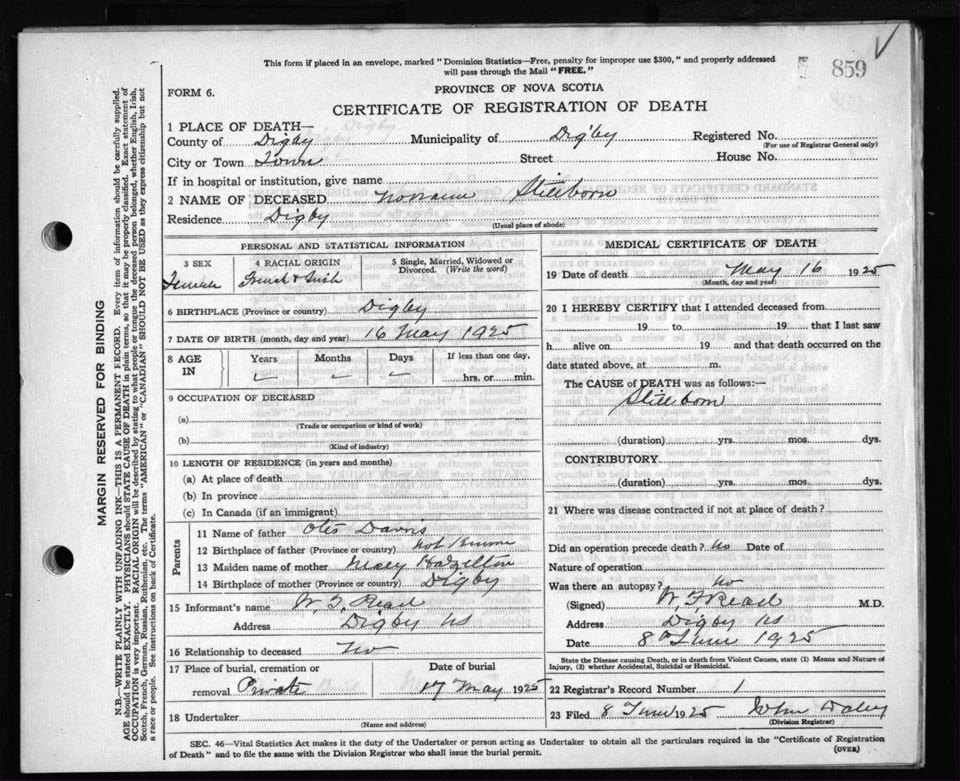 This form if placed in an envelope, marked "Dominion Statistics—Free, penalty for improper use $300," and properly addressed
will pass through the Mail "FREE."
859
FORM 6.
PROVINCE OF NOVA SCOTIA
CERTIFICATE OF REGISTRATION OF DEATH
1 PLACE OF DEATH—
County of Digby Municipality of Digby Registered No.
(For use of Registrar General only)
City or Town Town Street House No.
If in hospital or institution, give name
2 NAME OF DECEASED Stillborn
Residence Digby
(Usual place of abode)
PERSONAL AND STATISTICAL INFORMATION
3 SEX 4 RACIAL ORIGIN 5 Single, Married, Widowed or
Divorced. (Write the word)
Female French & Irish
6 BIRTHPLACE (Province or country) Digby
7 DATE OF BIRTH (month, day and year) 16 May 1925
8 AGE IN Years Months Days If less than one day,
hrs. or min.
9 OCCUPATION OF DECEASED
(a)
(Trade or occupation or kind of work)
(b)
(Kind of industry)
10 LENGTH OF RESIDENCE (in years and months)
(a) At place of death
(b) In province
(c) In Canada (if an immigrant)
Parents
11 Name of father Otis
12 Birthplace of father (Province or country) not known
13 Maiden name of mother Mary
14 Birthplace of mother (Province or country) Digby
15 Informant's name W. F. Read
Address Digby NS
16 Relationship to deceased No
17 Place of burial, cremation or Date of burial
removal Private 17 May 1925
18 Undertaker
(Name and address)
MEDICAL CERTIFICATE OF DEATH
19 Date of death May 16 1925
(Month, day and year)
20 I HEREBY CERTIFY that I attended deceased from
19 to 19 that I last saw
h alive on 19 and that death occurred on the
date stated above, at m.
The CAUSE OF DEATH was as follows:—
Stillborn
(duration) yrs. mos. dys.
CONTRIBUTORY
(duration) yrs. mos. dys.
21 Where was disease contracted if not at place of death?
Did an operation precede death? No Date of
Nature of operation
Was there an autopsy? No
(Signed) W F Read M.D.
Address Digby NS
Date 8th June 1925
State the Disease causing Death, or in death from Violent Causes, state (1) Means and Nature of
Injury, (2) whether Accidental, Suicidal or Homicidal.
22 Registrar's Record Number 1
23 Filed 8 June 1925 John Daley
(Division Registrar)
SEC. 46—Vital Statistics Act makes it the duty of the Undertaker or person acting as Undertaker to obtain all the particulars required in the "Certificate of Registration
of Death" and to file the same with the Division Registrar who shall issue the burial permit.
(OVER)
MARGIN RESERVED FOR BINDING
N.B.—WRITE PLAINLY WITH UNFADING INK—THIS IS A PERMANENT RECORD. Every item of information should be carefully supplied.
AGE should be stated EXACTLY. PHYSICIANS should STATE CAUSE OF DEATH in plain terms, so that it may be properly classified. Exact statement of
OCCUPATION is very important. RACIAL ORIGIN will be described by stating to what people or tongue the deceased person belonged, whether English, Irish,
Scotch, French, German, Russian, Ruthenian, etc. The terms "AMERICAN" or "CANADIAN" SHOULD NOT BE USED as they express citizenship but not
a race or people. See instructions on back of Certificate.